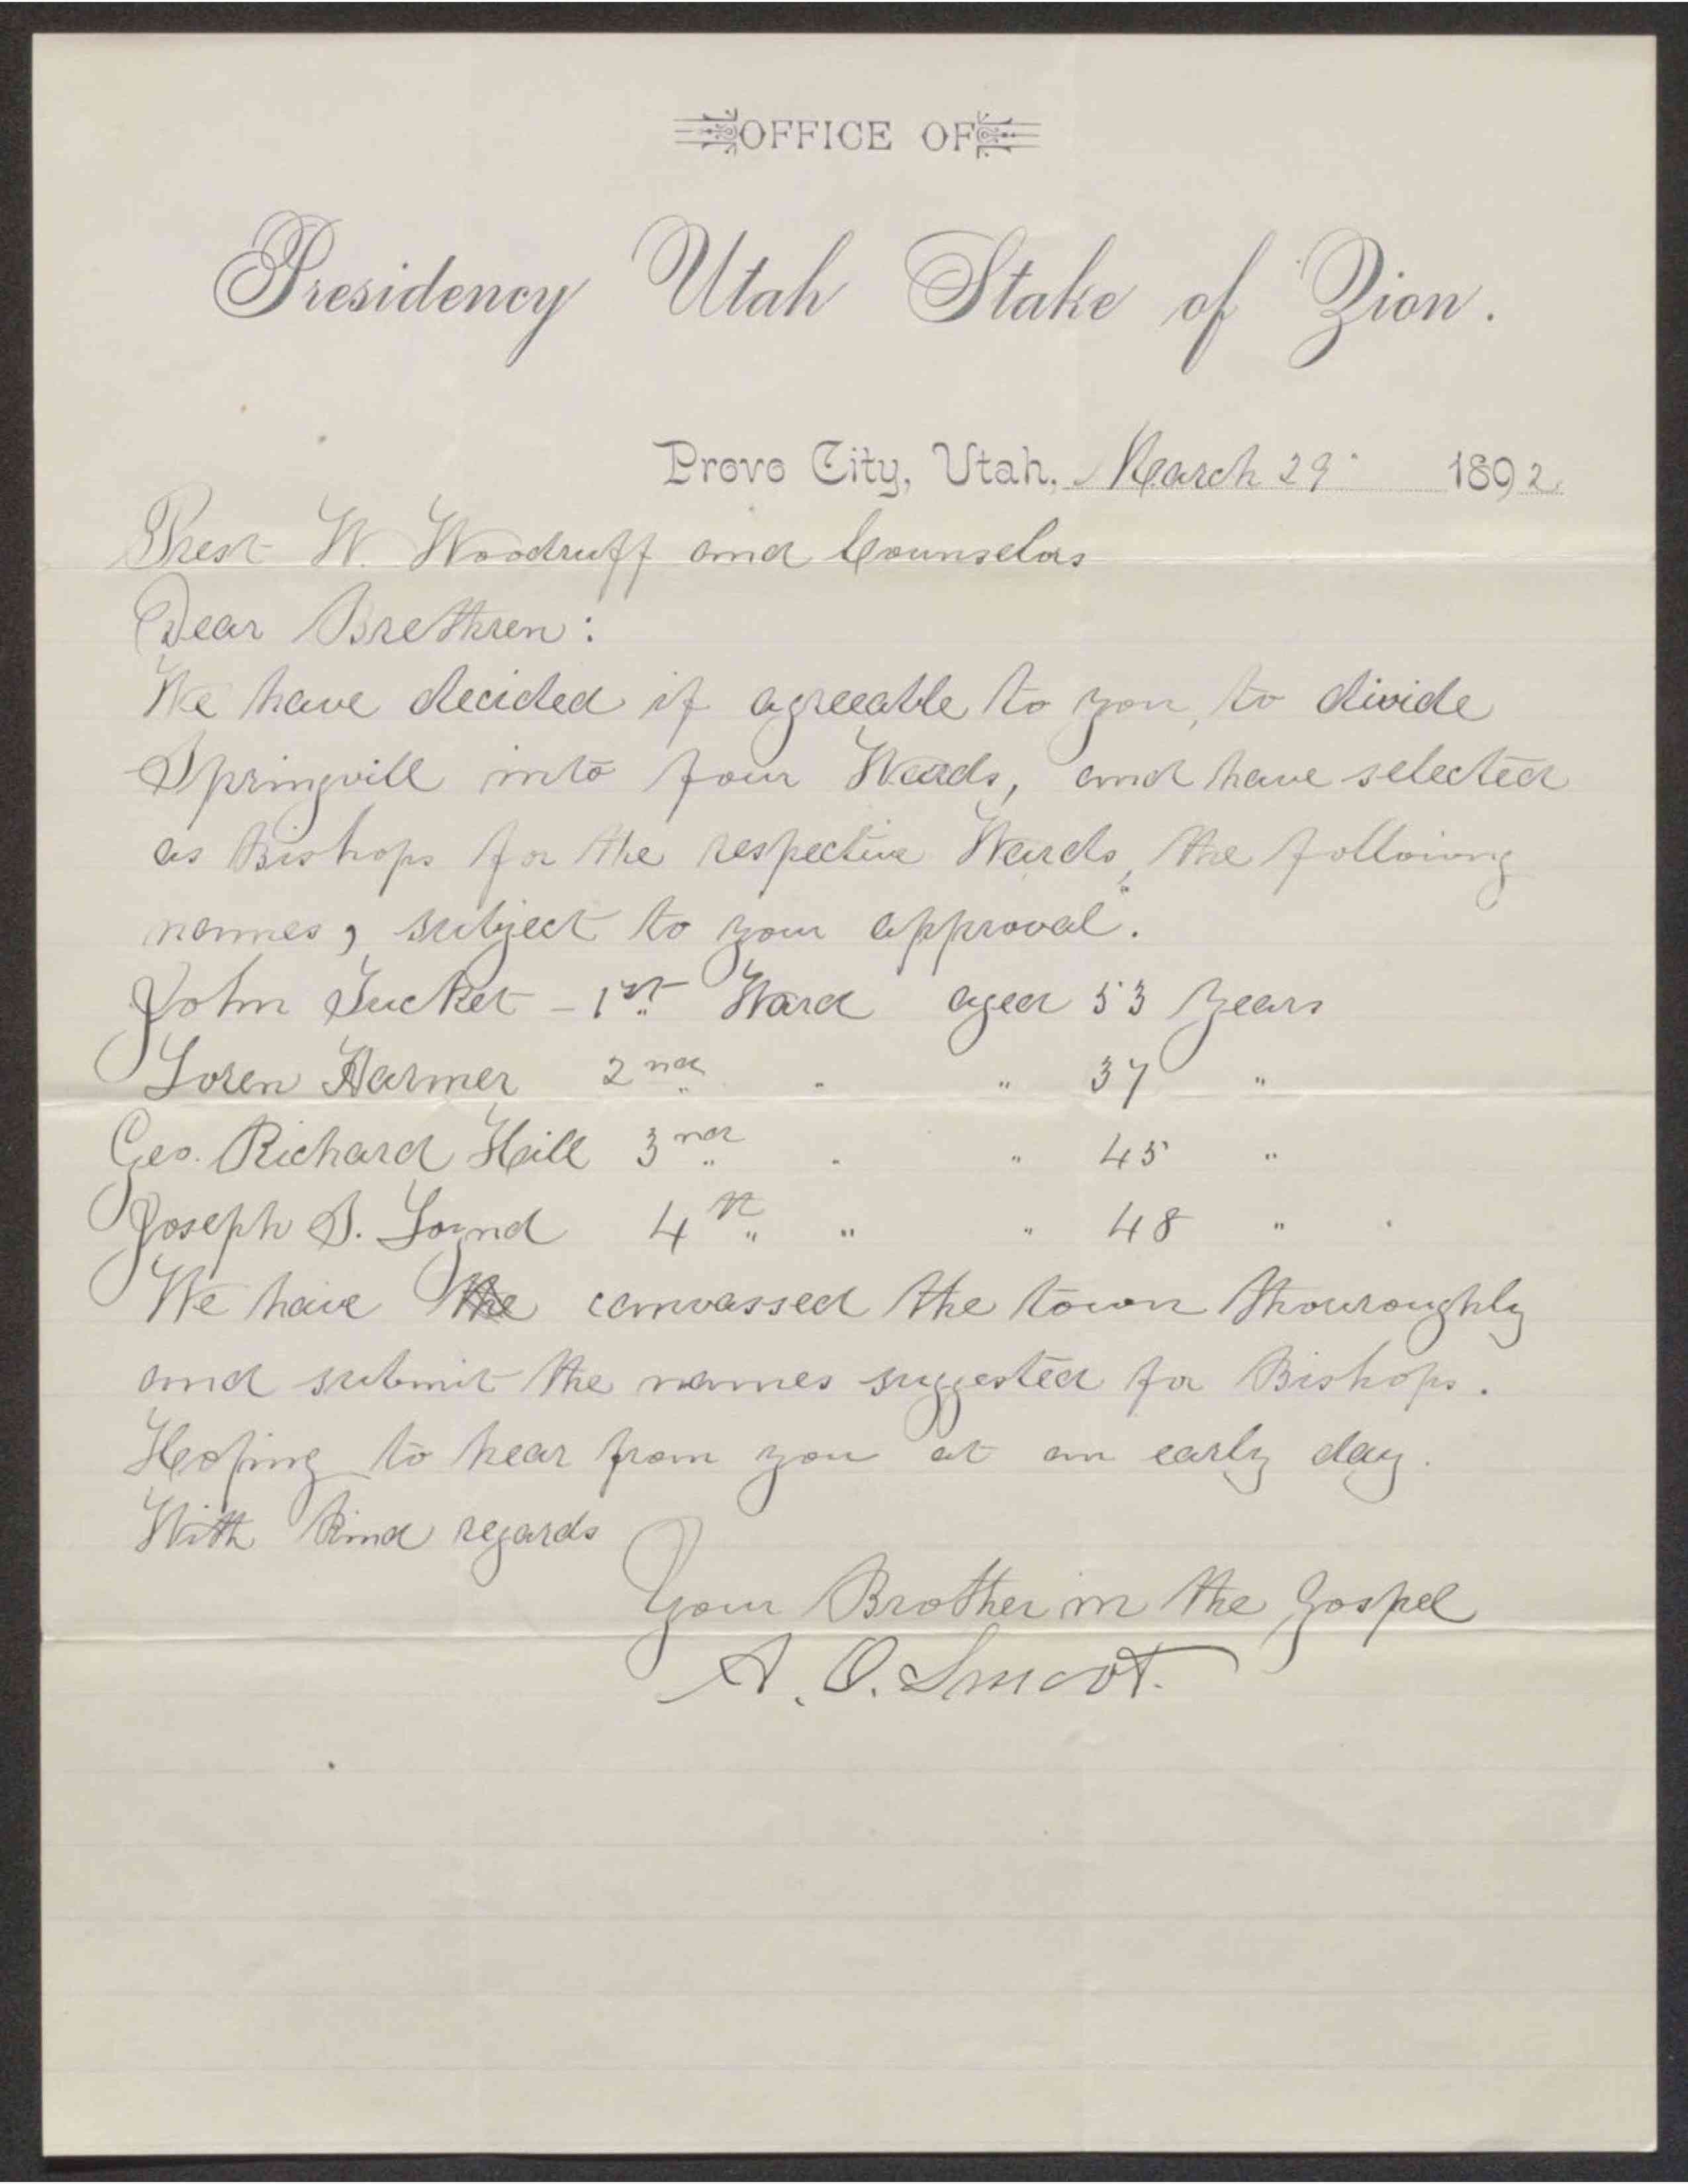 OFFICE OF
Presidency Utah Stake of Zion.
Provo City, Utah, March 29" 1892.
Prest W. Woodruff and Counselors
Dear Brethren:
We have decided if agreeable to you, to divide
Springvill into four Wards, and have selected
as Bishops for the respective Wards, the following
names, subject to your approval".
John Tucket - 1st Ward aged 53 Years
Loren Harmer 2nd " " 37 "
Geo. Richard Hill 3rd " " 45 "
Joseph S. Loynd 4th " " 48 "
We have the canvassed the town thouroughly
and submit the names suggested for Bishops.
Hoping to hear from you at an early day.
With kind regards
Your Brother in the Gospel
A. O. Smoot.